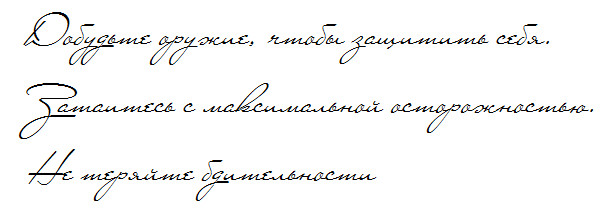 Добудьте оружие, чтобы защитить себя.
Затаитесь с максимальной осторожностью.
Не теряйте бдительности